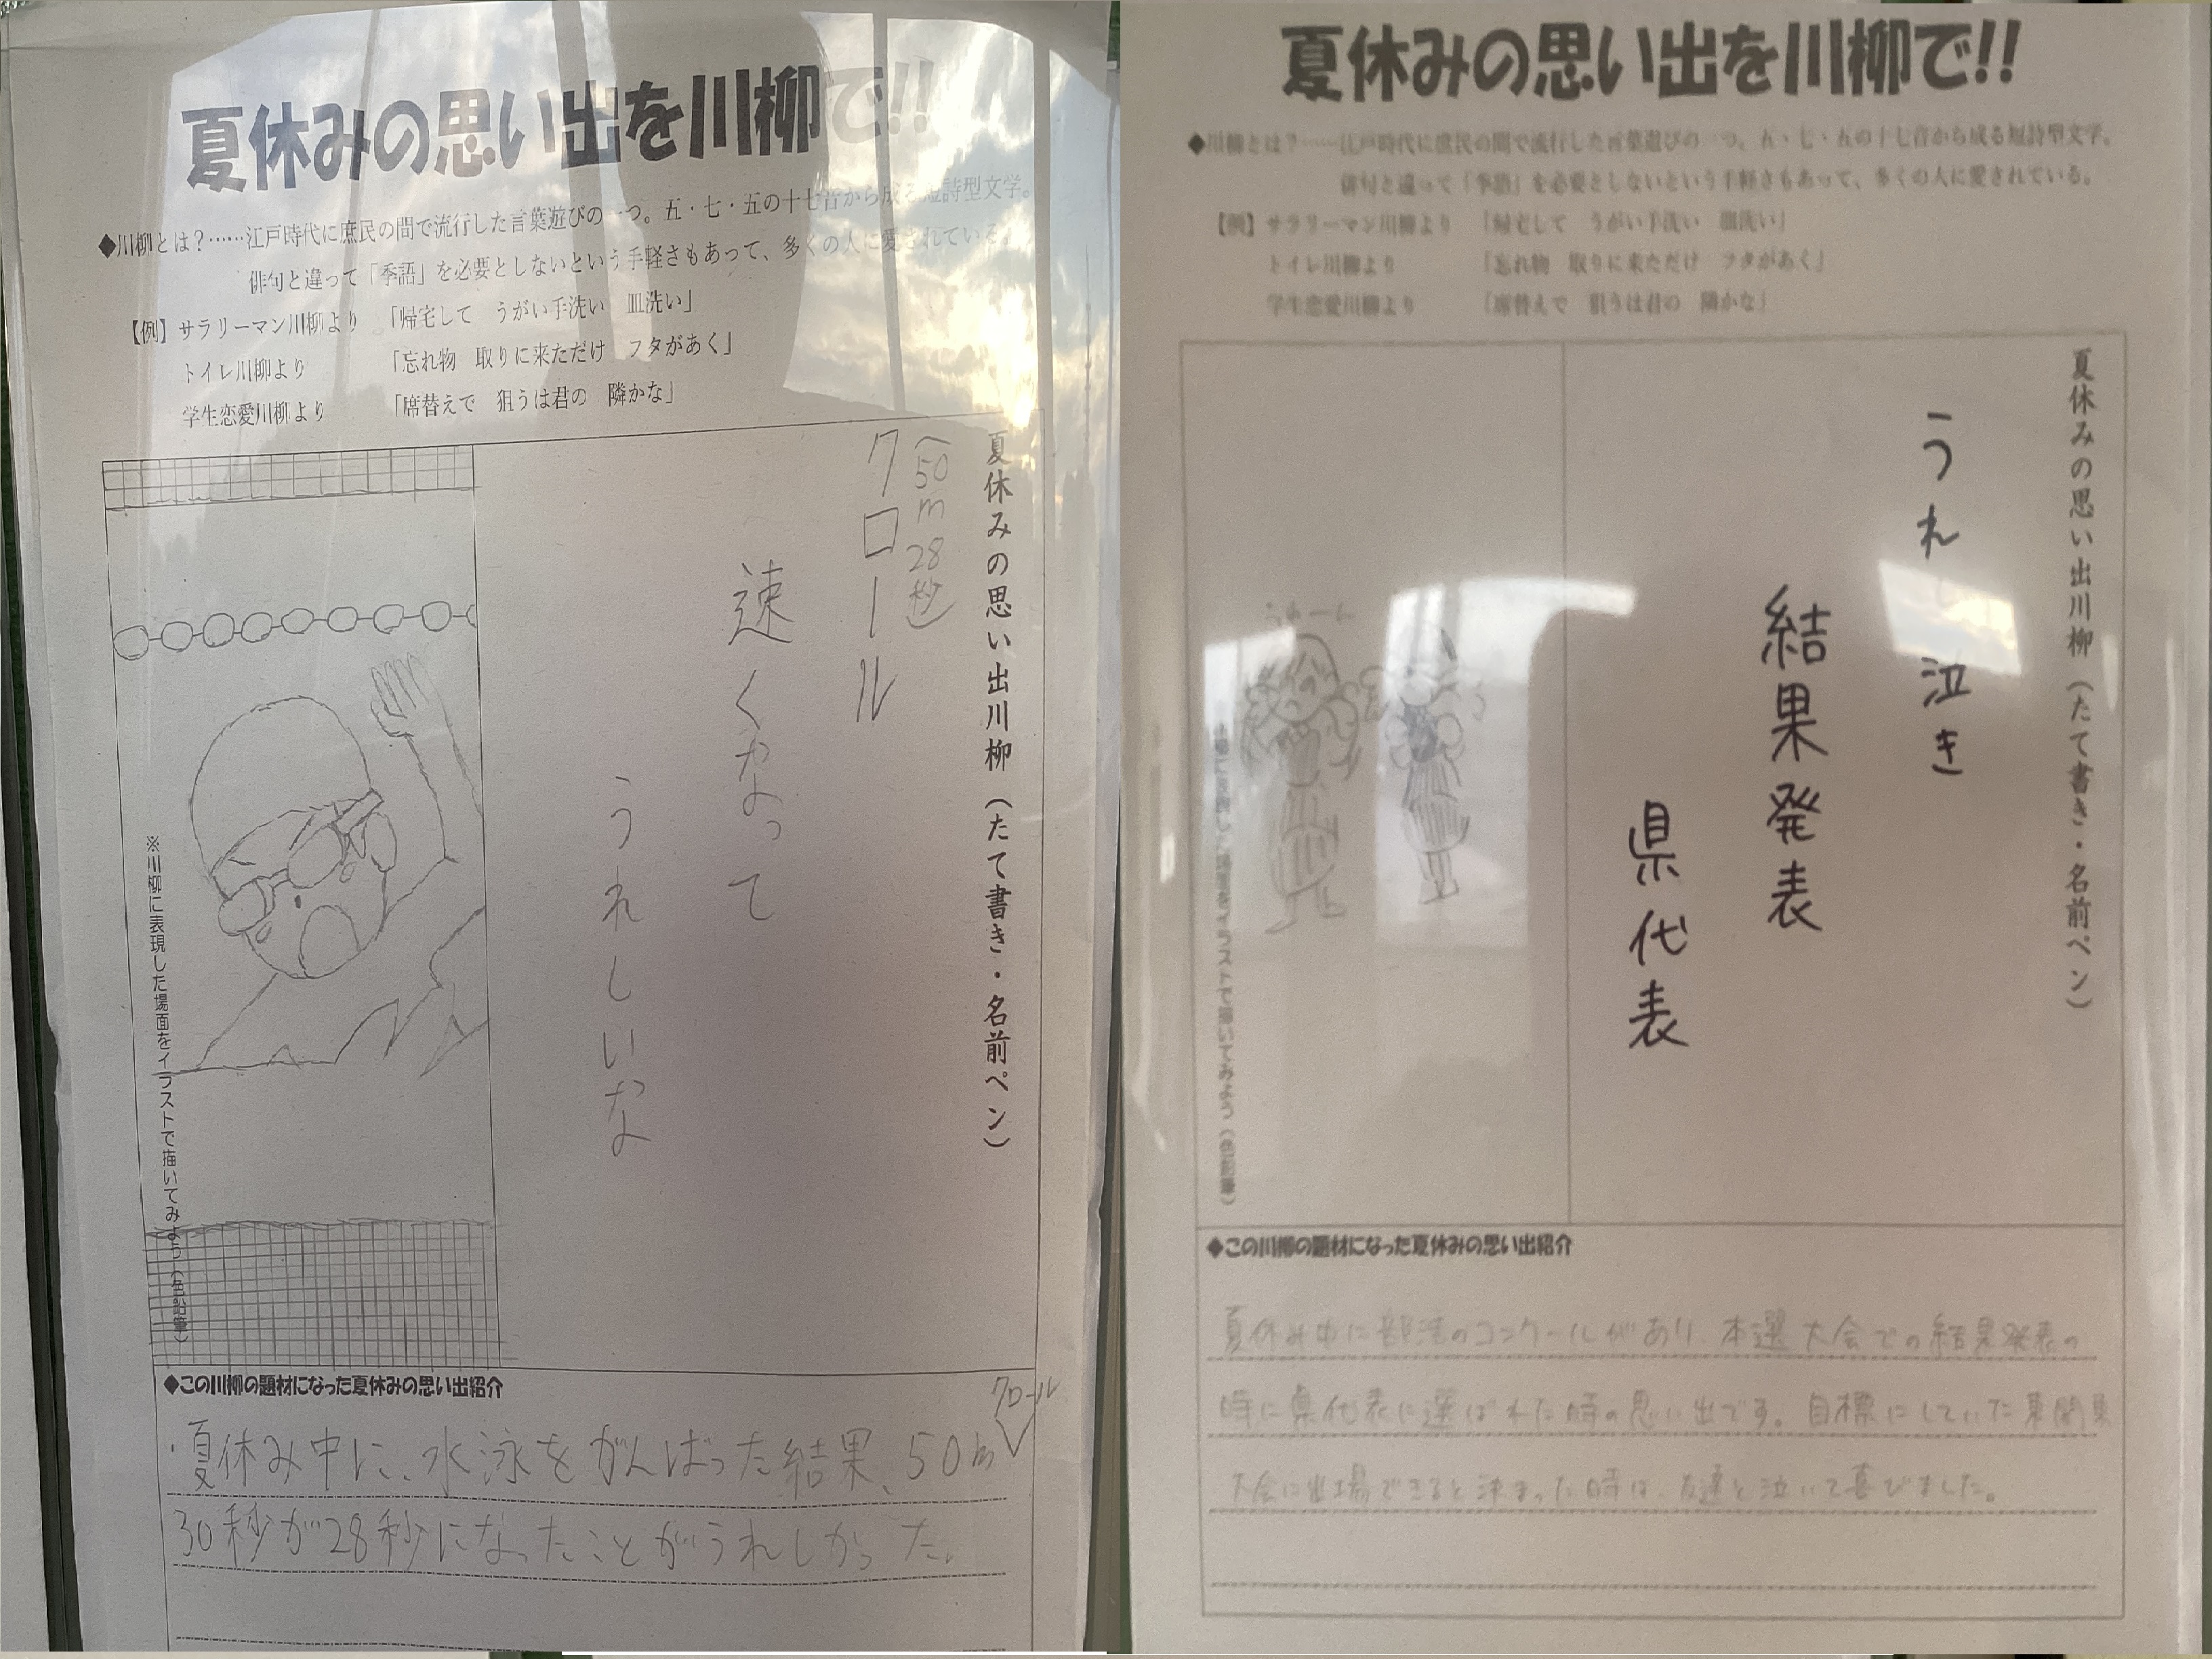 夏休みの思い出を川柳で!!
◆川柳とは?……江戸時代に庶民の間で流行した言葉遊びの一つ。五・七・五の十七音から成る短詩型文学。
俳句と違って「季語」を必要としないという手軽さもあって、多くの人に愛されている。
【例】サラリーマン川柳より 「帰宅して うがい手洗い 皿洗い」
トイレ川柳より 「忘れ物 取りに来ただけ フタがあく」
学生恋愛川柳より 「席替えで 狙うは君の 隣かな」
夏休みの思い出川柳(たて書き・名前ペン)
(50m28秒)
クロール
速くなって
うれしいな
※川柳に表現した場面をイラストで描いてみよう(色鉛筆)
◆この川柳の題材になった夏休みの思い出紹介
クロール
・夏休み中に、水泳をがんばった結果、50m
30秒が28秒になったことがうれしかった。
夏休みの思い出を川柳で!!
◆川柳とは?……江戸時代に庶民の間で流行した言葉遊びの一つ。五・七・五の十七音から成る短詩型文学。
俳句と違って「季語」を必要としないという手軽さもあって、多くの人に愛されている。
【例】サラリーマン川柳より 「帰宅して うがい手洗い 皿洗い」
トイレ川柳より 「忘れ物 取りに来ただけ フタがあく」
学生恋愛川柳より 「席替えで 狙うは君の 隣かな」
夏休みの思い出川柳(たて書き・名前ペン)
うれし泣き
結果発表
県代表
※川柳に表現した場面をイラストで描いてみよう(色鉛筆)
◆この川柳の題材になった夏休みの思い出紹介
夏休み中に部活のコンクールがあり、本選大会での結果発表の
時に県代表に選ばれた時の思い出です。目標にしていた東関東
大会に出場できると決まった時は、友達と泣いて喜びました。